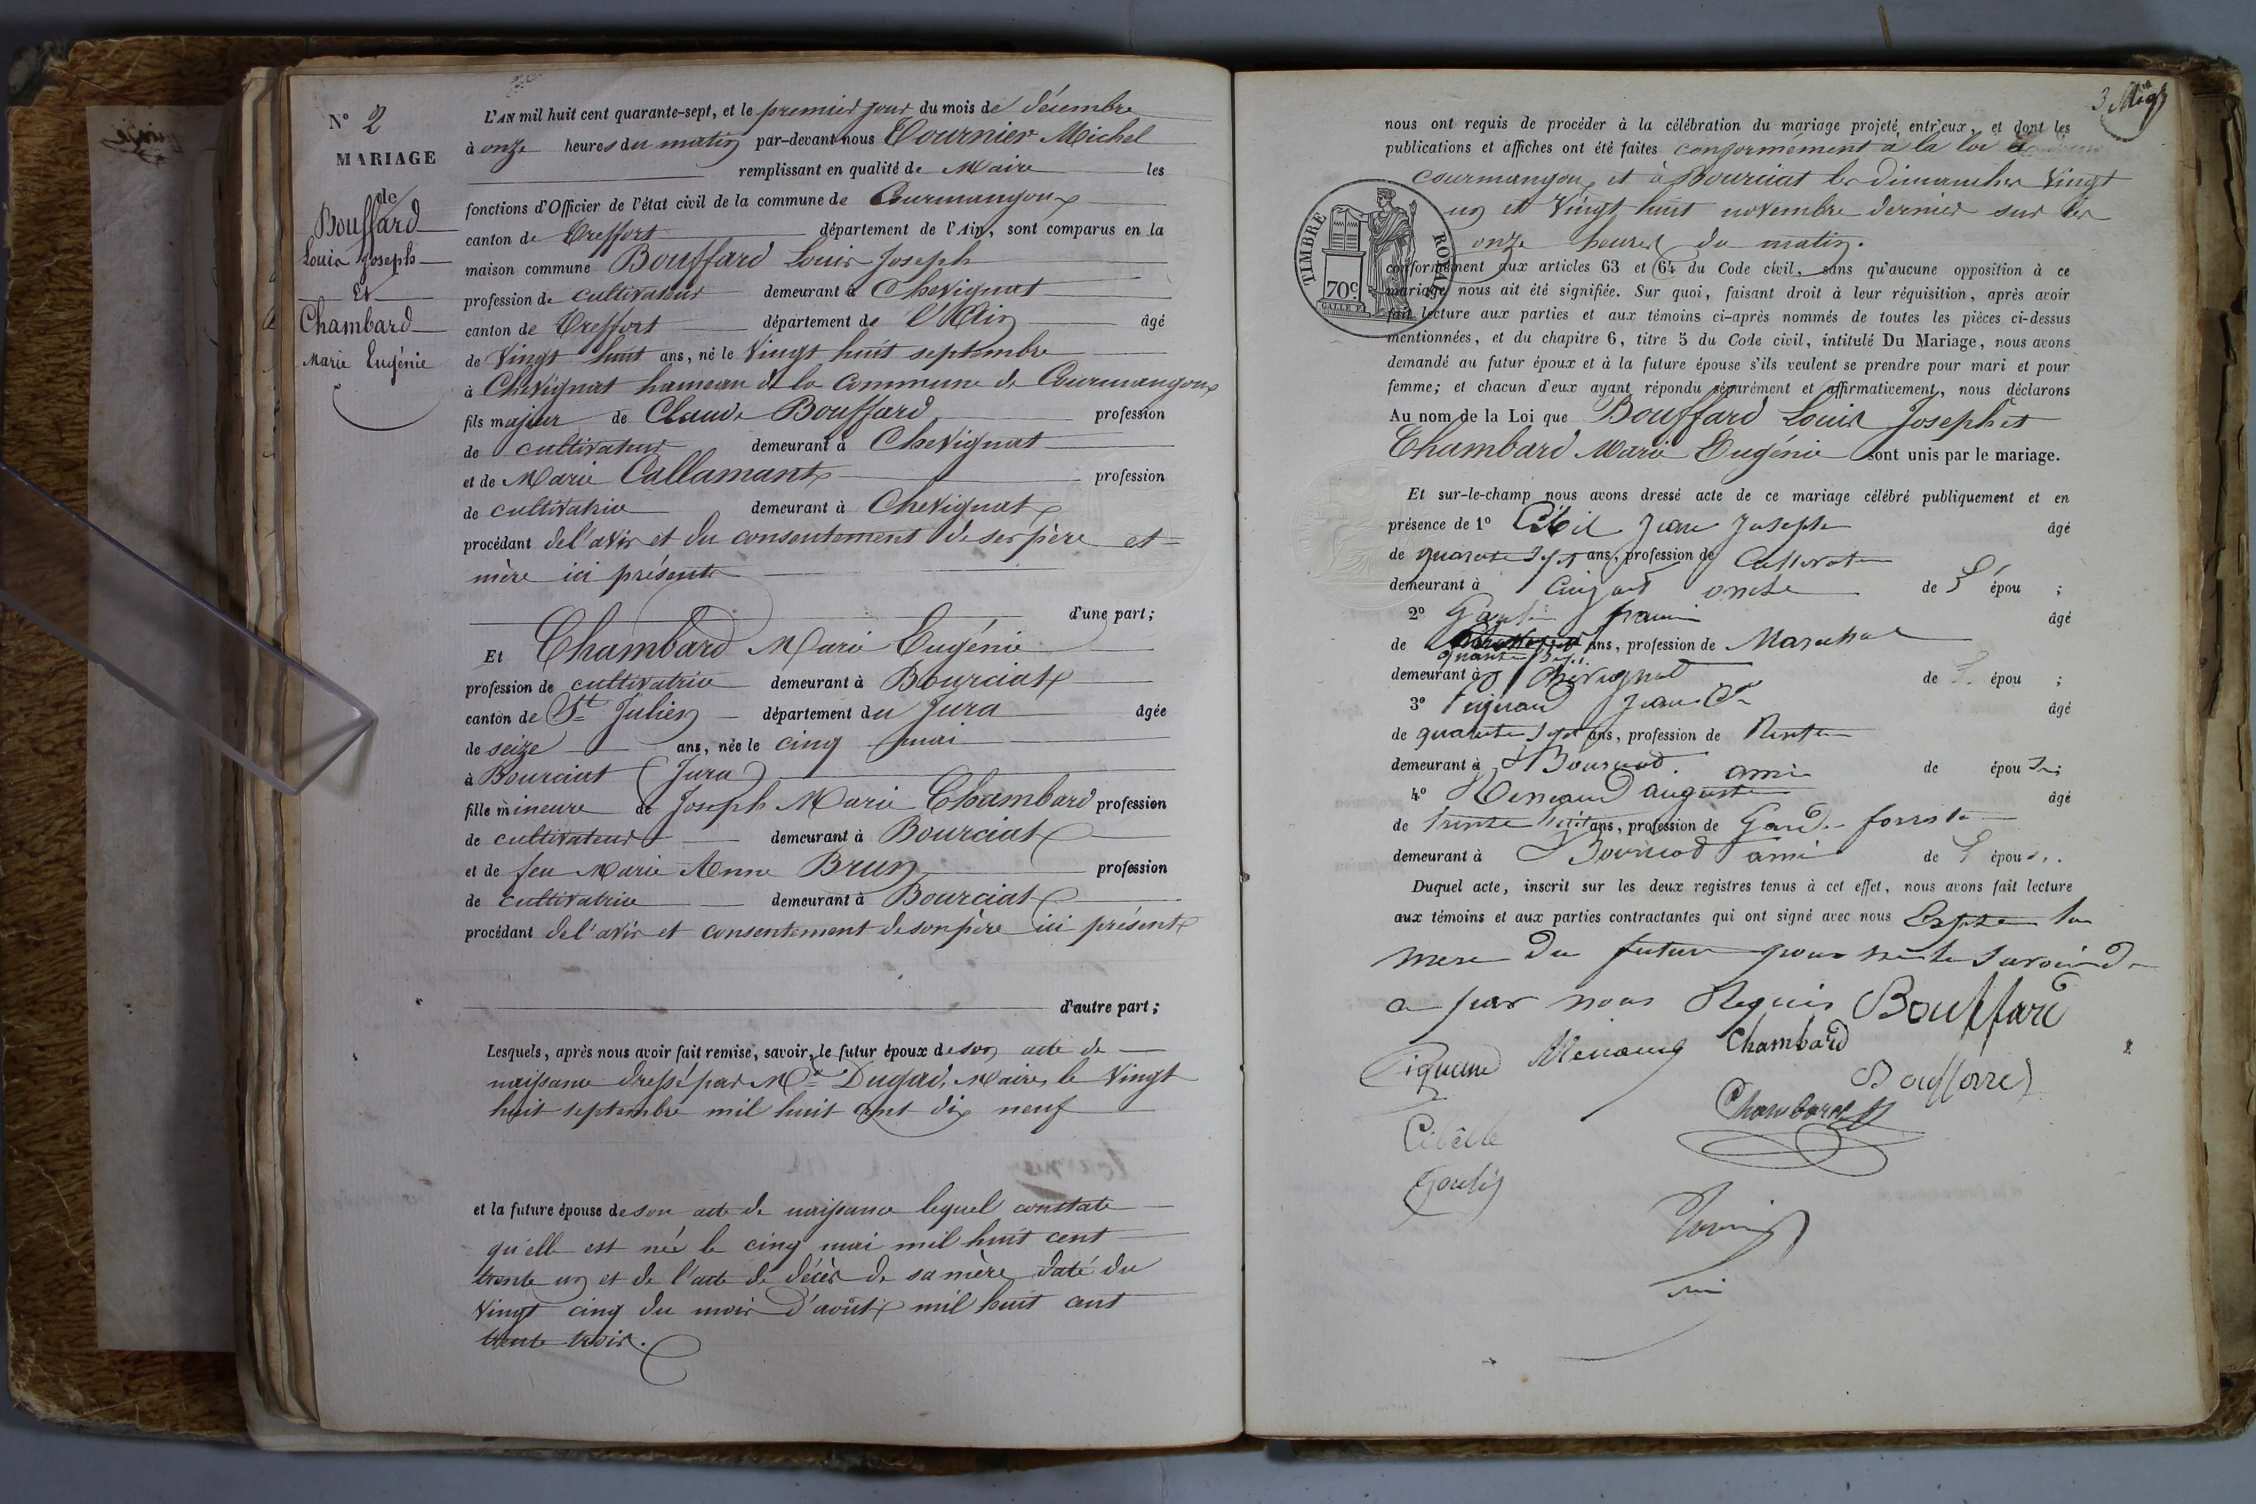 N° 2
MARIAGE
de
Bouffard
Louis Joseph
Et
Chambard
Marie Eugénie
L'AN mil huit cent quarante-sept, et le premier jour du mois de décembre
à onze heures du matin par-devant nous Tournier Michel
remplissant en qualité de Maire les
fonctions d'Officier de l'état civil de la commune de Courmangoux
canton de Treffort département de l'Ain, sont comparus en la
maison commune Bouffard Louis Joseph
profession de cultivateur demeurant à Chevignat
canton de Treffort département de l'Ain âgé
de Vingt huit ans, né le Vingt huit septembre
à Chevignat hameau de la Commune de Courmangoux
fils majeur de Claude Bouffard profession
de cultivateur demeurant à Chevignat
et de Marie Callamant profession
de cultivatrice demeurant à Chevignat
procédant de l'avis et du consentement de ses père et
mère ici présents
d'une part;
Et Chambard Marie Eugénie
profession de cultivatrice demeurant à Bourciat
canton de St Julien département du Jura âgée
de seize ans, née le cinq mai
à Bourciat (Jura)
fille mineure de Joseph Marie Chambard profession
de cultivateur demeurant à Bourciat
et de feu Marie Anne Brun profession
de cultivatrice demeurant à Bourciat
procédant de l'avis et consentement de son père ici présent
d'autre part;
Lesquels, après nous avoir fait remise, savoir, le futur époux de son acte de
naissance dressé par Mr Dugad, Maire, le Vingt
huit septembre mil huit cent dix neuf
et la future épouse de son acte de naissance lequel constate
qu'elle est née le cinq mai mil huit cent
trente un et de l'acte de décès de sa mère daté du
Vingt cinq du mois d'août mil huit cent
trente trois.
nous ont requis de procéder à la célébration du mariage projeté entr'eux, et dont les
publications et affiches ont été faites conformément à la loi à
courmangoux et à Bourciat les dimanches Vingt
un et Vingt huit novembre dernier sur les
onze heures du matin.
TIMBRE ROYAL
70c
conformément aux articles 63 et 64 du Code civil, sans qu'aucune opposition à ce
mariage nous ait été signifiée. Sur quoi, faisant droit à leur réquisition, après avoir
fait lecture aux parties et aux témoins ci-après nommés de toutes les pièces ci-dessus
mentionnées, et du chapitre 6, titre 5 du Code civil, intitulé Du Mariage, nous avons
demandé au futur époux et à la future épouse s'ils veulent se prendre pour mari et pour
femme; et chacun d'eux ayant répondu séparément et affirmativement, nous déclarons
Au nom de la Loi que Bouffard Louis Joseph et
Chambard Marie Eugénie sont unis par le mariage.
Et sur-le-champ nous avons dressé acte de ce mariage célébré publiquement et en
présence de 1° Jean Joseph âgé
de quarante sept ans, profession de Cultivateur
demeurant à oncle de l'épou ;
2° âgé
de quarante ans, profession de Marechal
demeurant à Chevignat de épou ;
3° Jean âgé
de quarante sept ans, profession de Rentier
demeurant à Bourciat ami de épou ;
4° auguste âgé
de trente huit ans, profession de Garde forestier
demeurant à Bourciat ami de l'épou
Duquel acte, inscrit sur les deux registres tenus à cet effet, nous avons fait lecture
aux témoins et aux parties contractantes qui ont signé avec nous Excepté la
mere du futur pour ne le savoir de
ce par nous Requis Bouffard
Piquand Chambard
Bouffard
Chambard